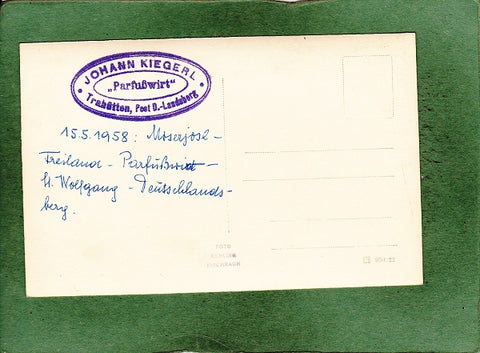 JOHANN KIEGERL
„Parfußwirt“
Trahütten, Post D.-Landsberg
15.5.1958: Moserjosl -
Freiland - Parfußwirt -
St. Wolfgang - Deutschlands-
berg.
FOTO